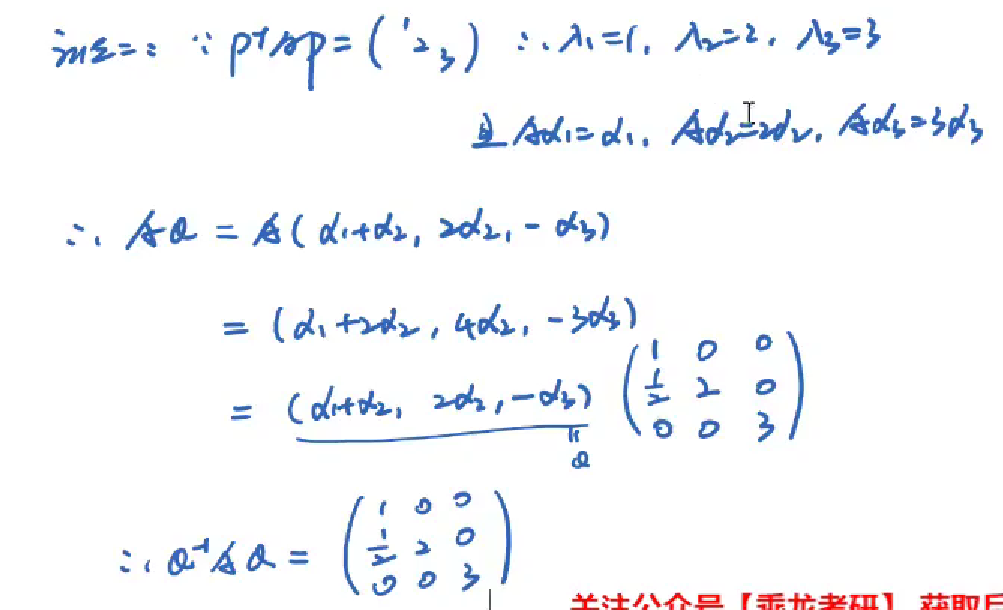 法二: ∵ P⁻¹AP = (1 2 3) ∴ λ₁=1, λ₂=2, λ₃=3
且 Aα₁=α₁, Aα₂=2α₂, Aα₃=3α₃
∴ AQ = A(α₁+α₂, 2α₂, -α₃)
= (α₁+2α₂, 4α₂, -3α₃)
= (α₁+α₂, 2α₂, -α₃) (1 0 0
1/2 2 0
0 0 3)
= Q
∴ Q⁻¹AQ = (1 0 0
1/2 2 0
0 0 3)
关注公众号【乘龙考研】获取